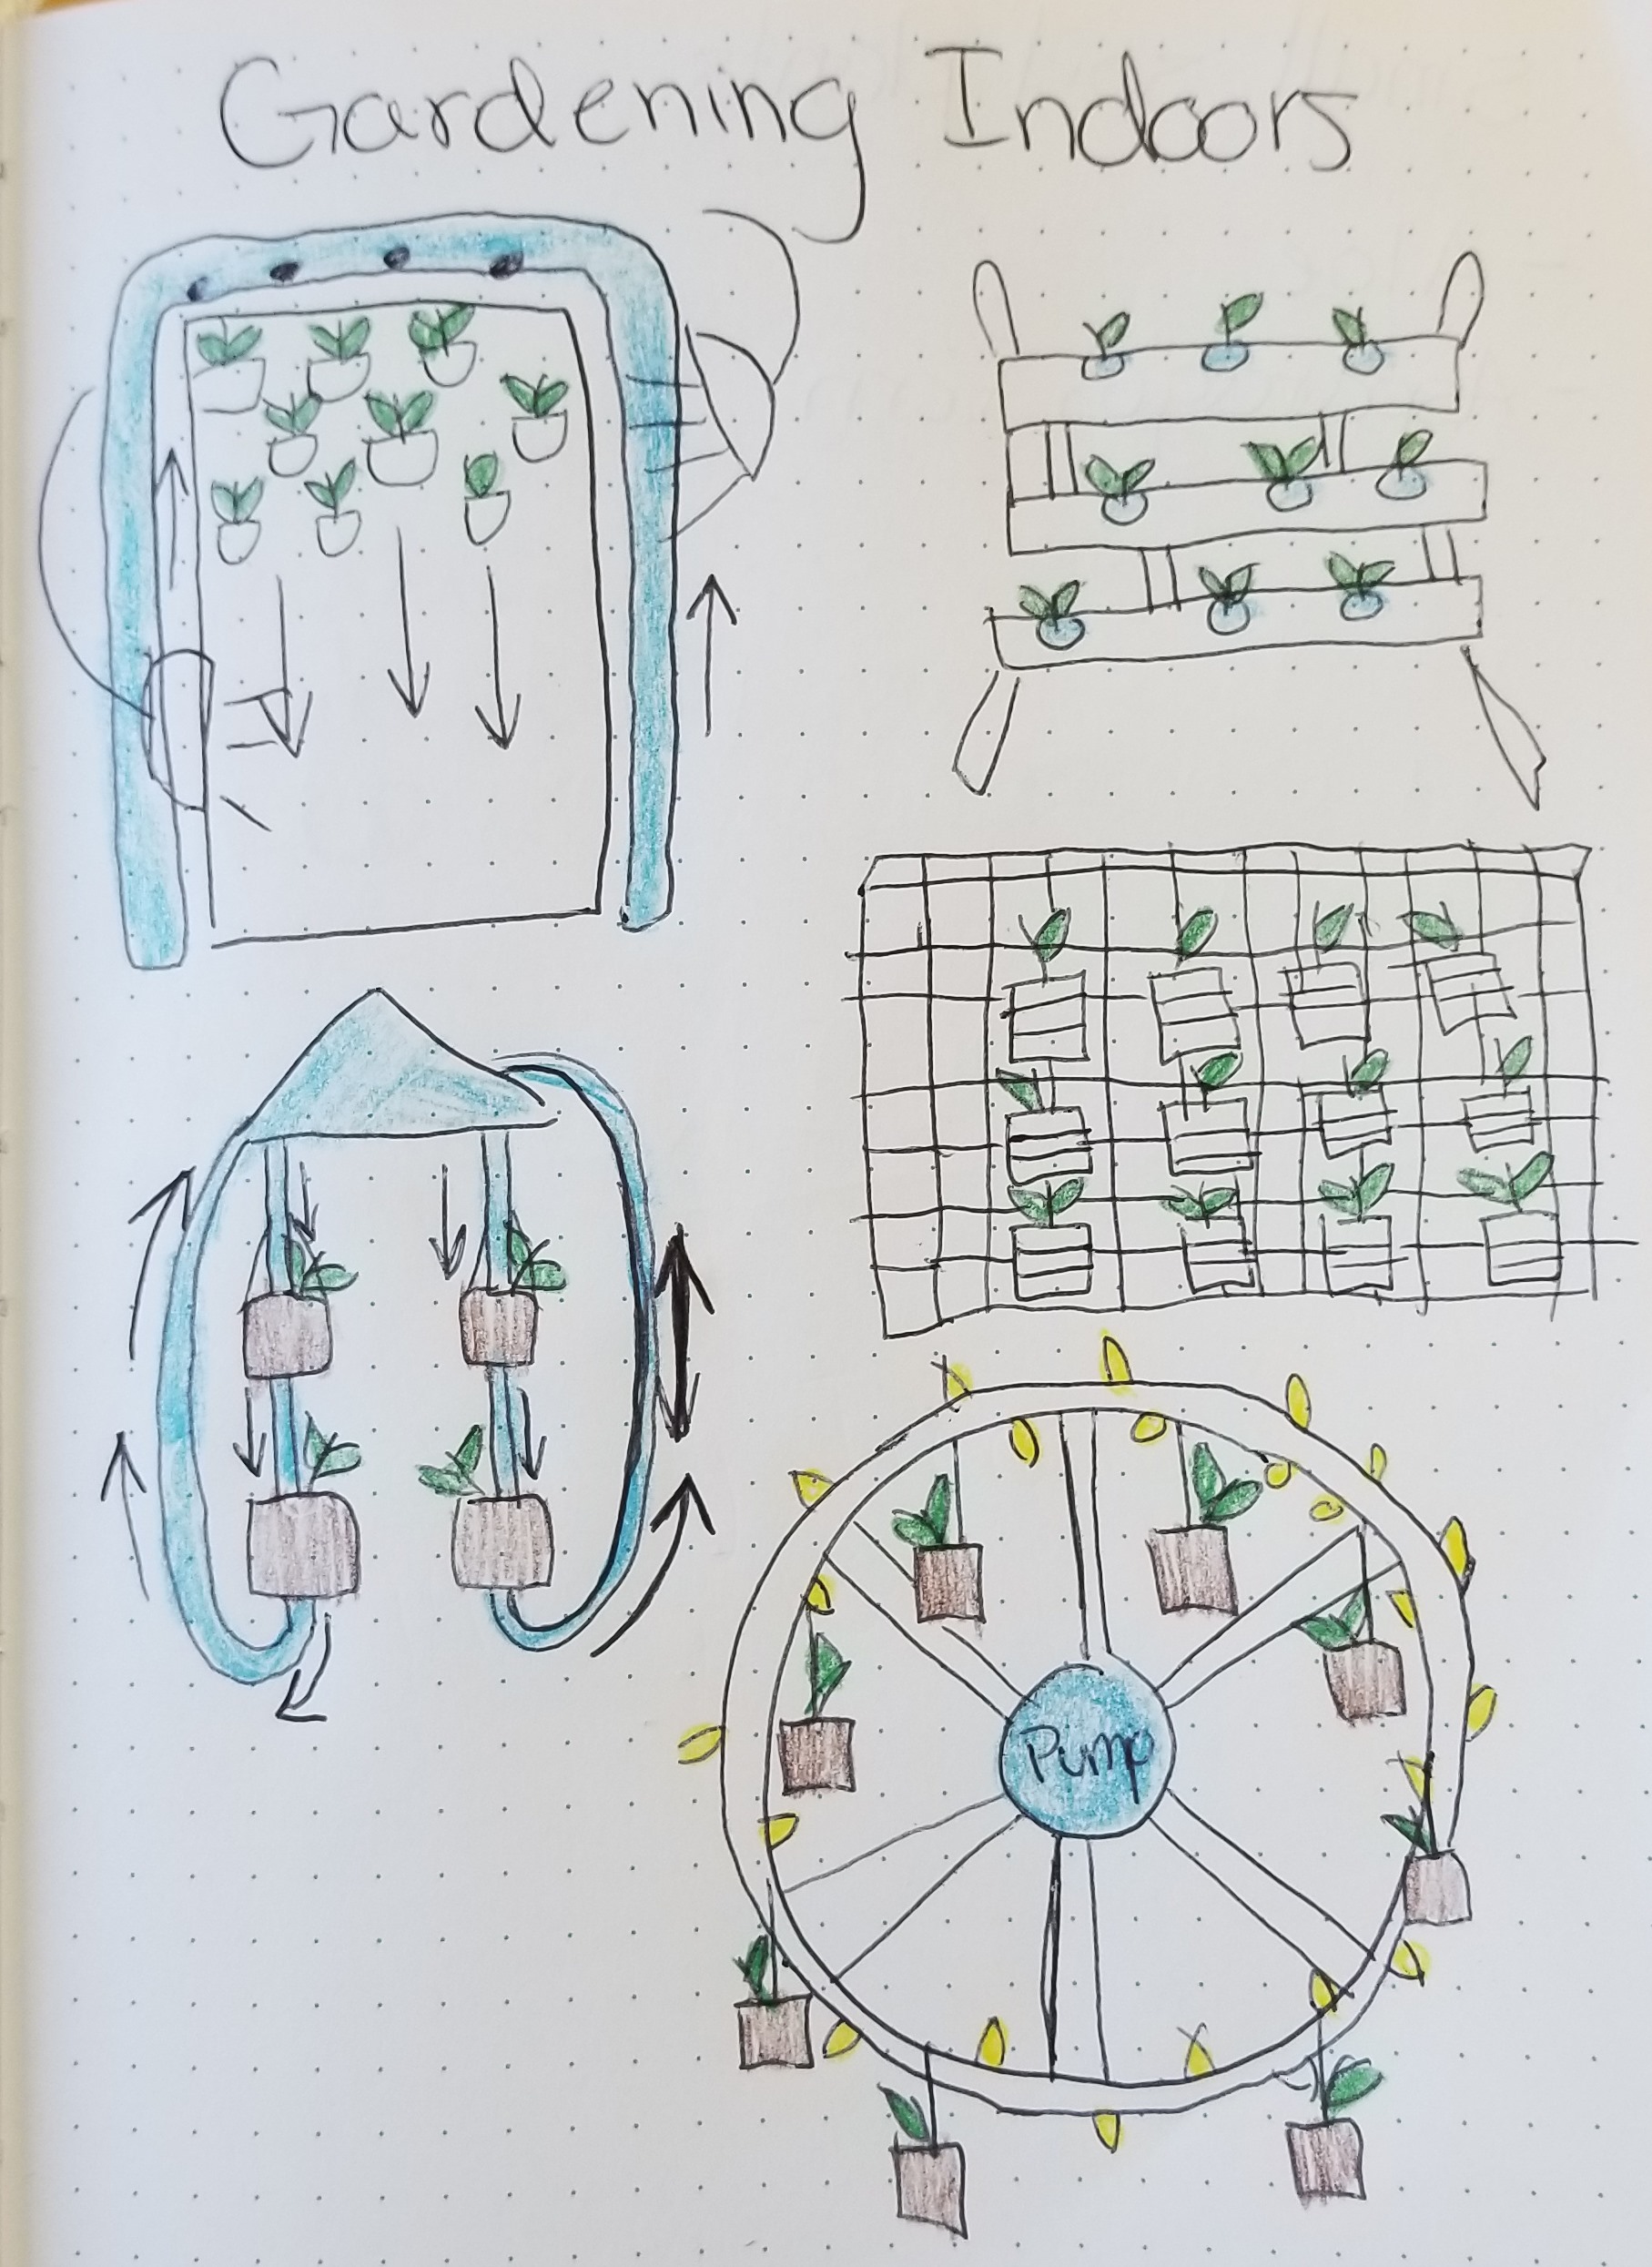 Gardening Indoors
Pump